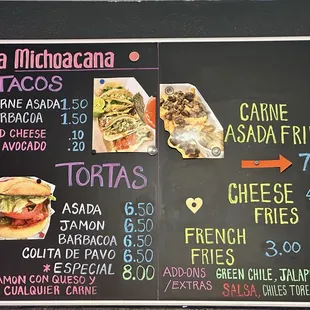 a Michoacana
TACOS
RNE ASADA 1.50
RBACOA 1.50
D CHEESE .10
AVOCADO .20
TORTAS
ASADA 6.50
JAMON 6.50
BARBACOA 6.50
COLITA DE PAVO 6.50
*ESPECIAL 8.00
AMON CON QUESO Y
CUALQUIER CARNE
CARNE
ASADA FRI
7
CHEESE
FRIES
FRENCH
FRIES 3.00
ADD-ONS GREEN CHILE, JALAP
/EXTRAS SALSA, CHILES TORE